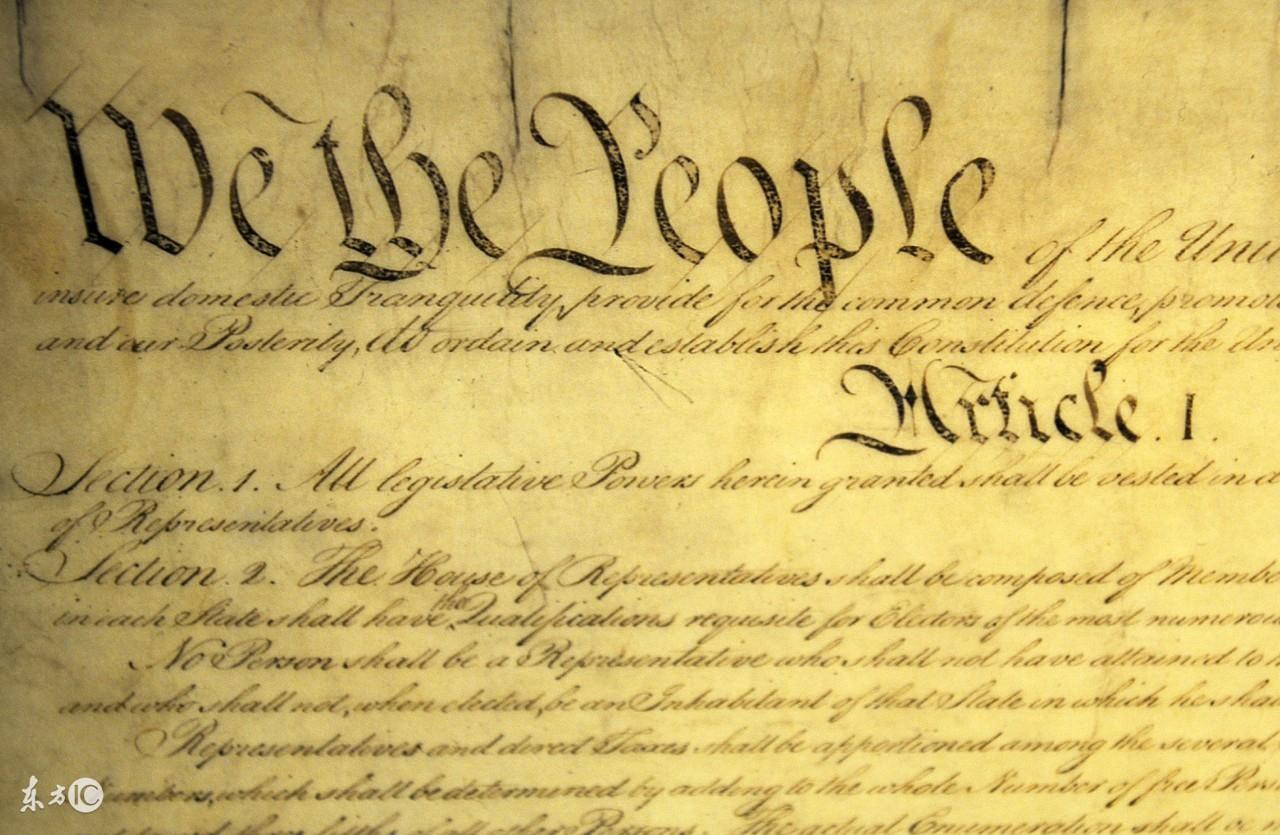 We the People of the Uni
insure domestic Tranquility, provide for the common defence, promo
and our Posterity, do ordain and establish this Constitution for the Un
Article. I.
Section. 1. All legislative Powers herein granted shall be vested in a
of Representatives.
Section. 2. The House of Representatives shall be composed of Membe
in each State shall have the Qualifications requisite for Electors of the most numerou
No Person shall be a Representative who shall not have attained to
and who shall not, when elected, be an Inhabitant of that State in which he shal
Representatives and direct Taxes shall be apportioned among the several
Numbers, which shall be determined by adding to the whole Number of free Pers
of all other Persons. The actual Enumeration shall be
东方IC